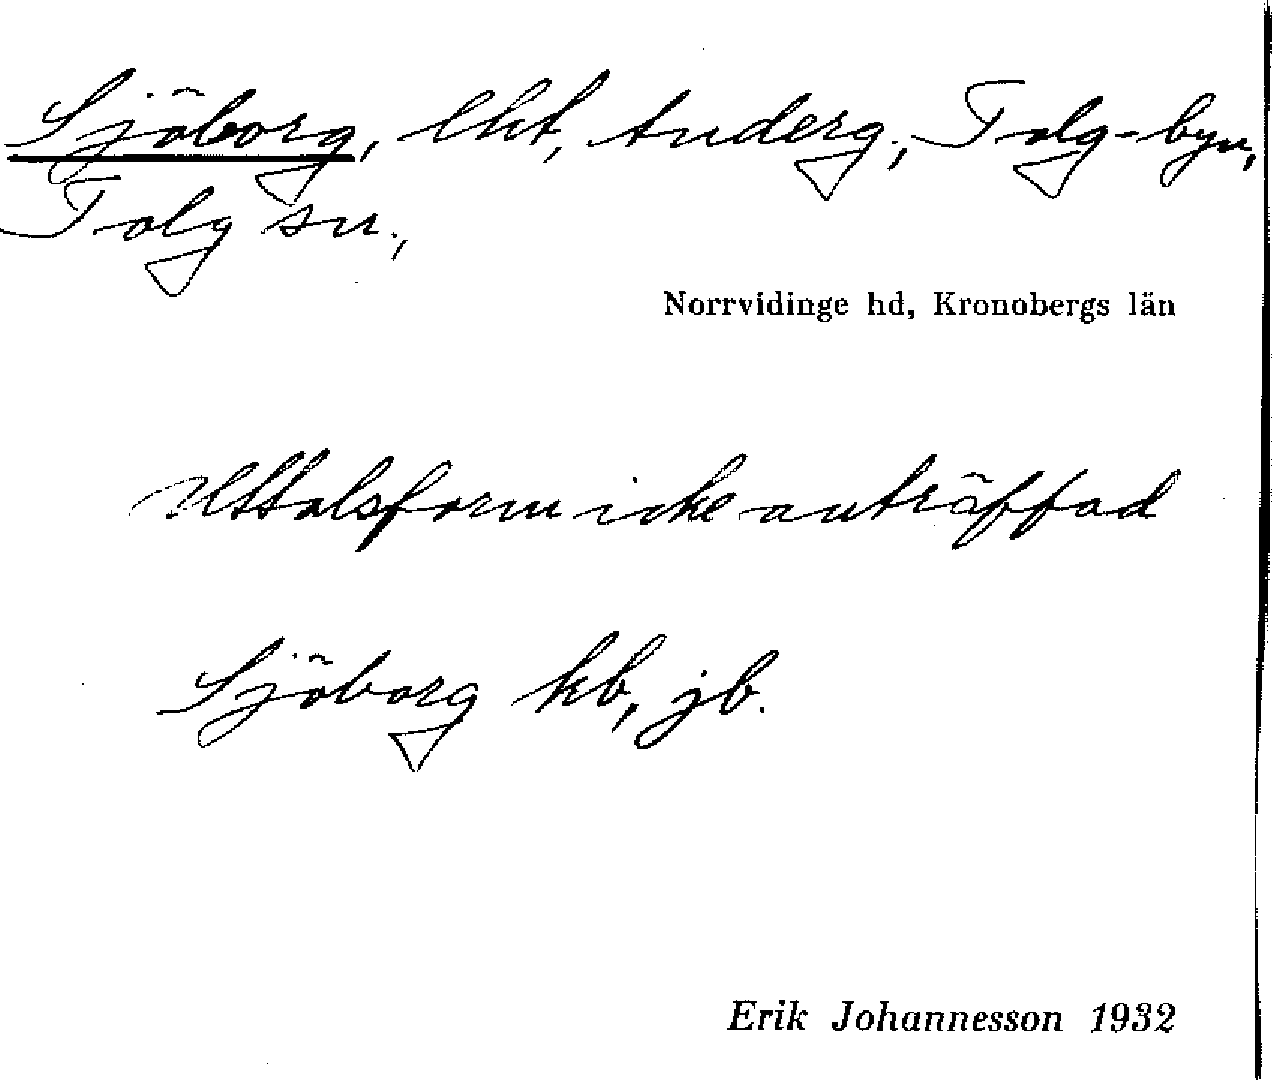 Sjöborg, lht, underg., Tolg-by,
Tolg sn.,
Norrvidinge hd, Kronobergs län
Uttalsform icke anträffad
Sjöborg kb, jb.
Erik Johannesson 1932